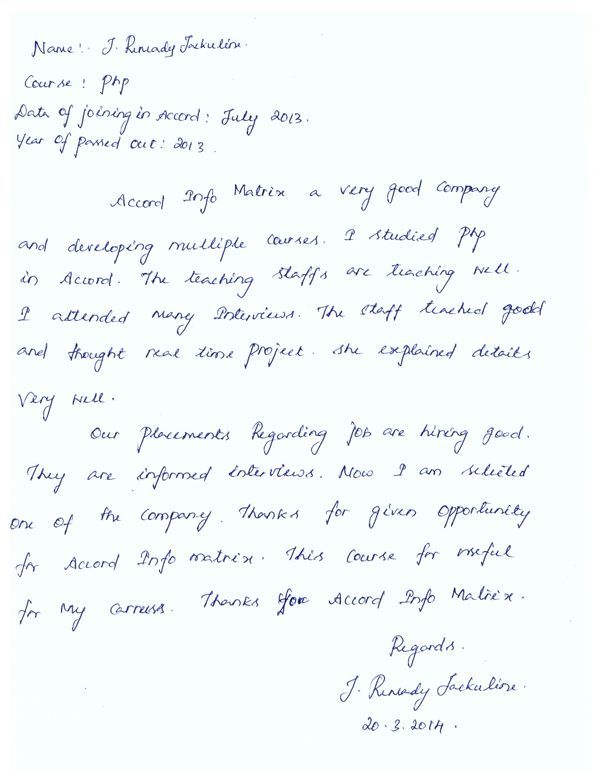 Name: J. Remady Jackuline.
Course: php
Data of joining in Accord: July 2013.
Year of passed out: 2013.
Accord Info Matrix a very good company
and developing multiple courses. I studied php
in Accord. The teaching staffs are teaching well.
I attended many Interviews. The staff teached good
and thought real time project. she explained details
very well.
Our placements Regarding job are hiring good.
They are informed interviews. Now I am selected
one of the company. Thanks for given opportunity
for Accord Info matrix. This course for useful
for my carreess. Thanks for Accord Info Matrix.
Regards.
J. Remady Jackuline.
20.3.2014.